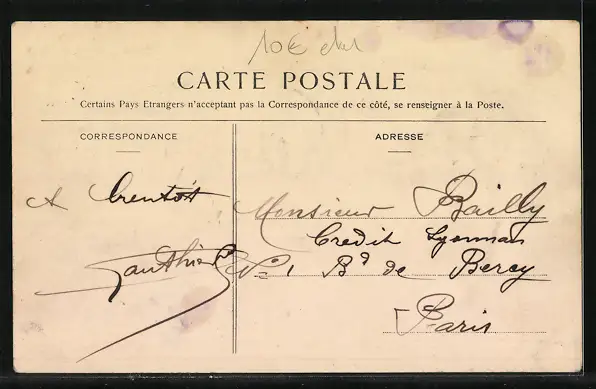 10€
CARTE POSTALE
Certains Pays Etrangers n'acceptent pas la Correspondance de ce côté, se renseigner à la Poste.
CORRESPONDANCE
ADRESSE
A bientôt
Gauthier
Monsieur Bailly
Credit Lyonnais
N= 1 Bd de Bercy
Paris